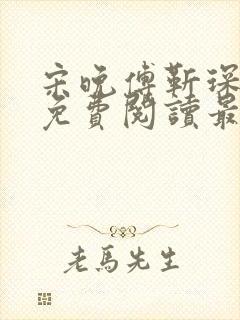 宋晚傅靳深
免費閱讀最
老馬先生